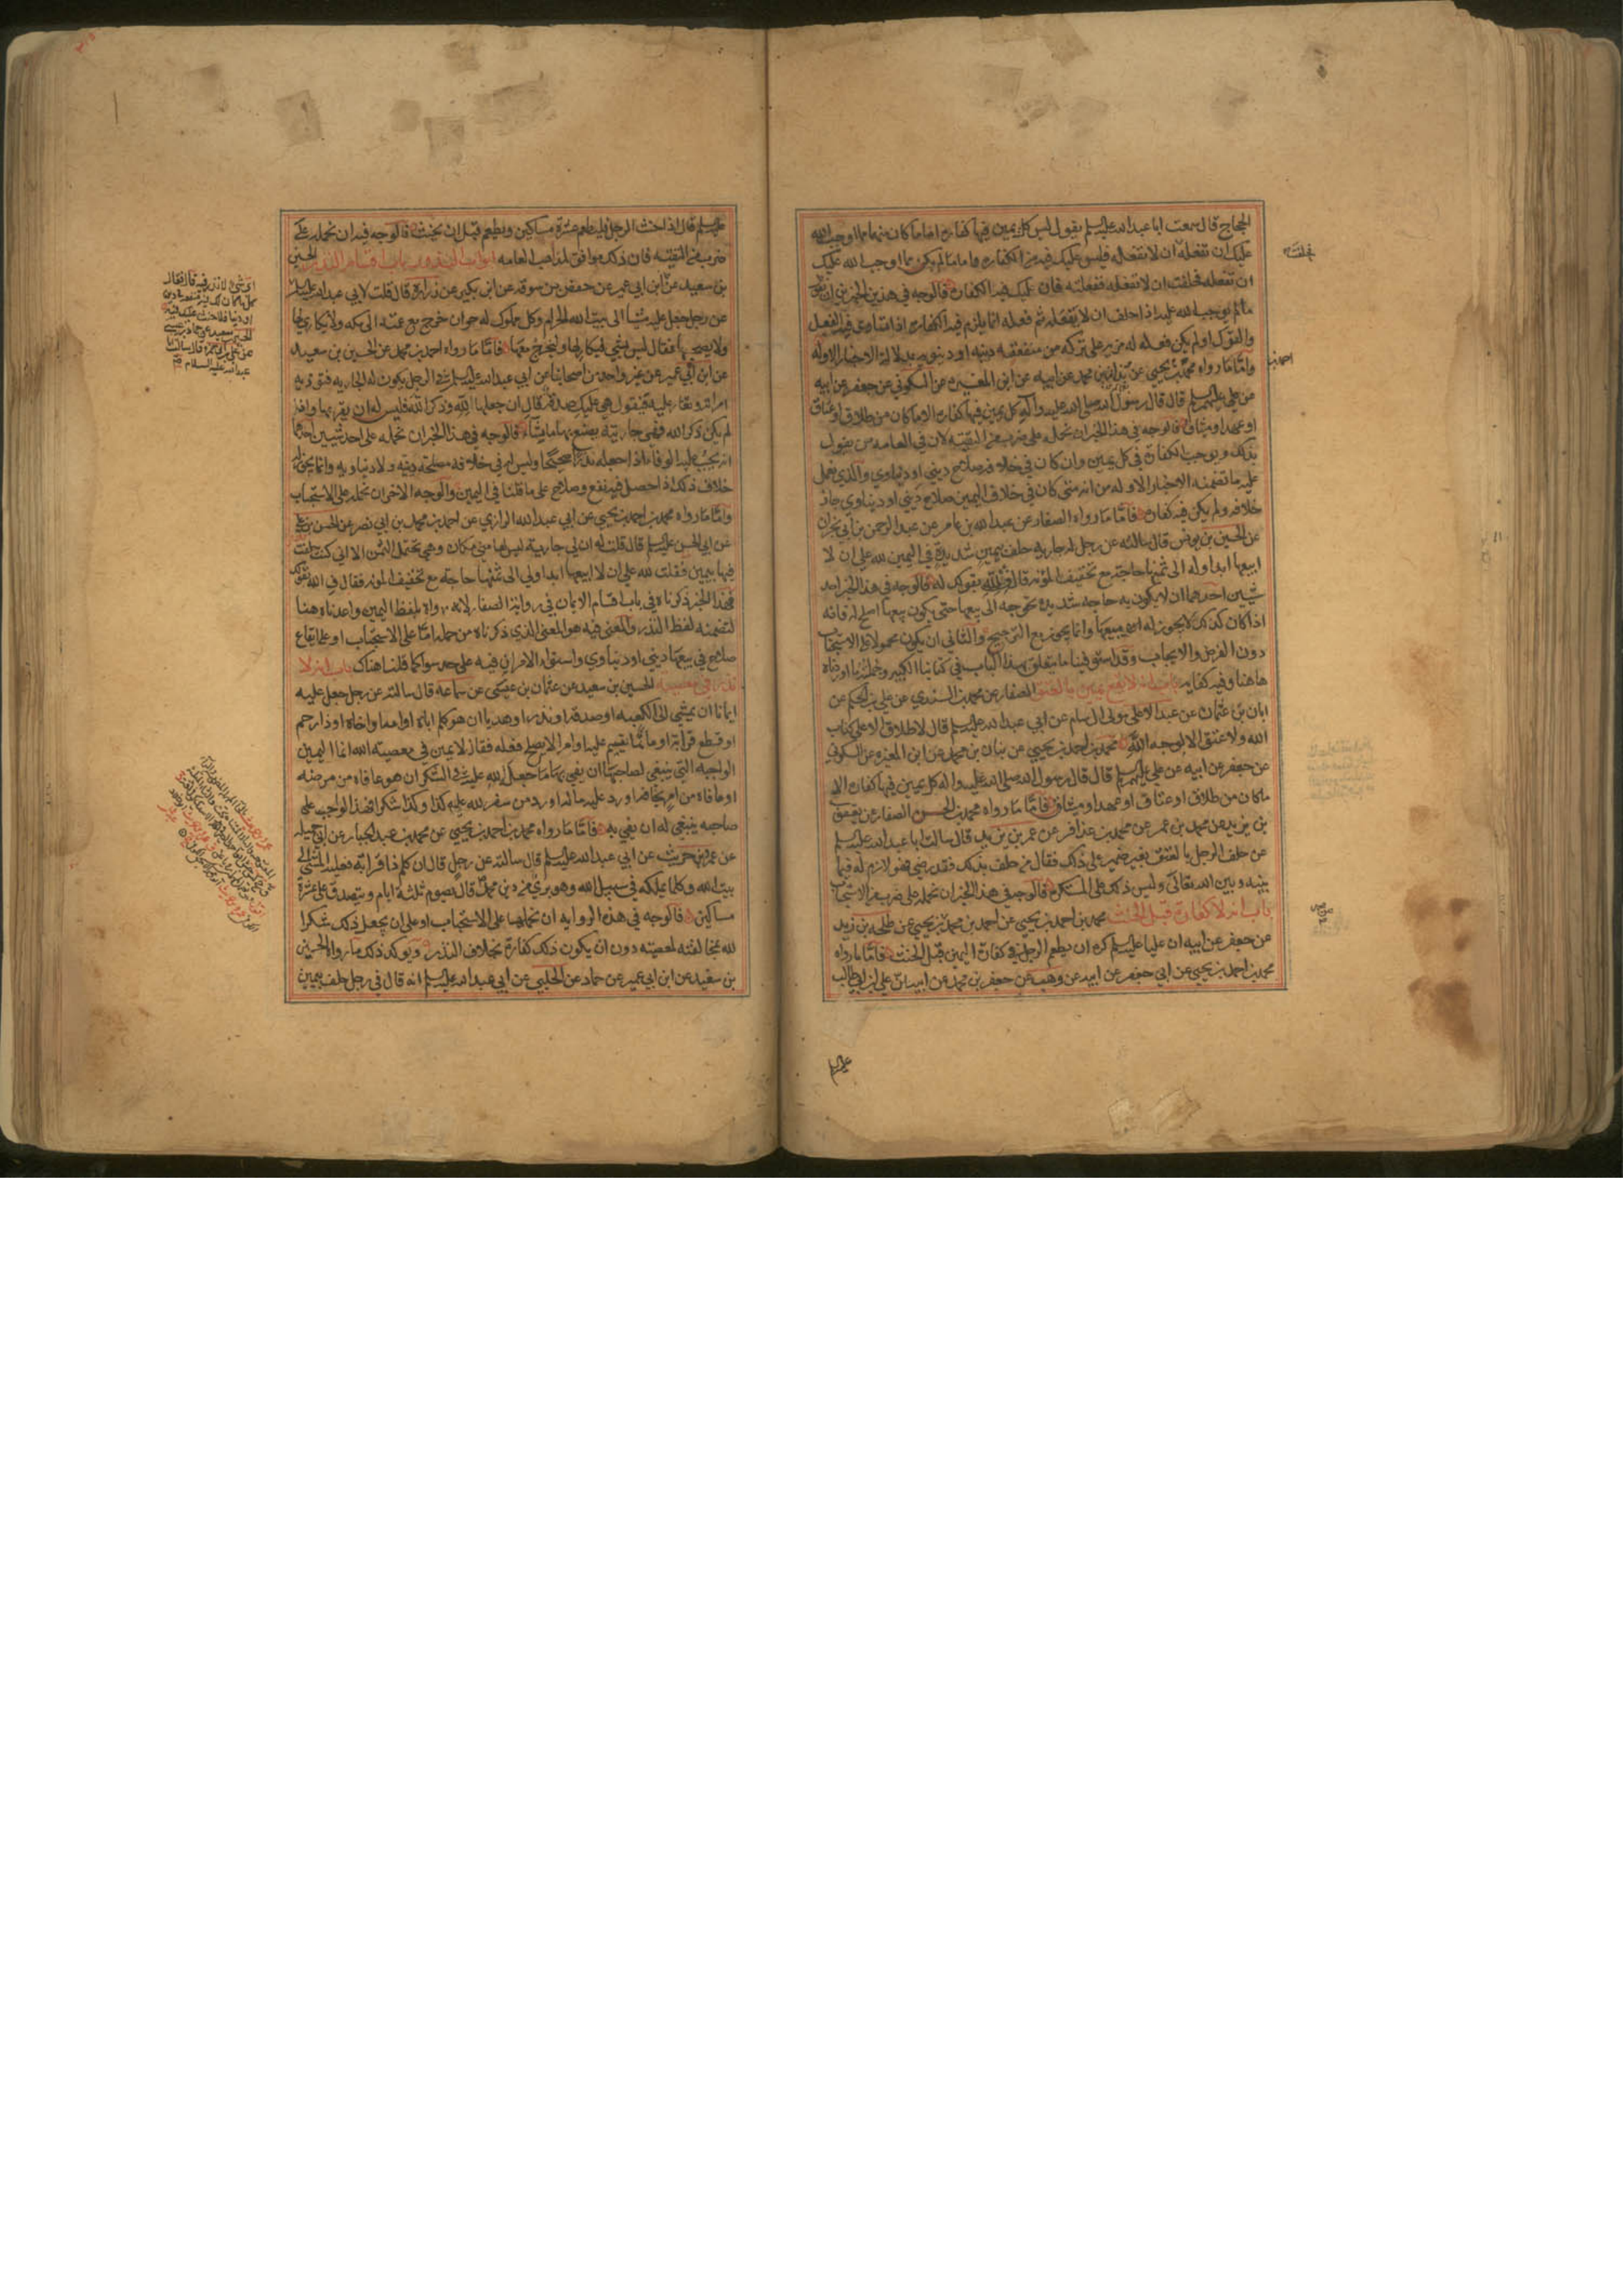 الحجاج قال سمعت ابا عبد الله عليه السلم يقول ليس كل يمين فيها كفارة اما ما كان منها مما اوجب الله
عليك ان تفعله ان لا تفعله فليس عليك فيه من الكفاره واما ما لم يكن مما اوجب الله عليك
ان تفعله فحلفت ان لا تفعله ففعلته فان عليك فيه الكفارة فالوجه في هذين الخبرين ان
ما لم يوجب الله عليه اذا حلف ان لا يفعله ثم فعله انما يلزم فيه الكفارة اذا تساوى فيه الفعل
والترك او لم يكن فعله له مزيد على تركه من منفعة دينيه او دنيويه بدلالة الاخبار الاوله
واما ما رواه محمد بن يحيى عن بنان بن محمد عن ابيه عن ابن المغيره عن السكوني عن جعفر عن ابيه
عن علي عليهم السلم قال قال رسول الله صلى الله عليه واله كل يمين فيها كفارة الا ما كان من طلاق او عتاق
او عهد او ميثاق فالوجه في هذا الخبر ان نحمله على ضرب من التقيه لان في العامه من يقول
بذلك ويوجب الكفارة في كل يمين وان كان في خلافه صلاح ديني او دنياوي والذي نعمل
عليه ما تضمنه الاخبار الاوله من انه متى كان في خلاف اليمين صلاح ديني او دنياوي جاز
خلافه ولم يكن فيه كفارة فاما ما رواه الصفار عن عبد الله بن عامر عن عبد الرحمن بن ابي نجران
عن الحسين بن يونس قال سالته عن رجل له جاريه حلف بيمين شديدة في اليمين لله علي ان لا
ابيعها ابدا وله الى ثمنها حاجة مع تخفيف المؤنه قال ف لله بقولك له فالوجه في هذا الخبر احد
شيئين احدهما ان لا يكون به حاجه شديدة تحوجه الى بيعها حتى يكون بيعها اصلح له فانه
اذا كان كذلك لا يجوز له بيعها وانما يجوز مع الترجيح والثاني ان يكون محمولا على الاستحباب
دون الفرض والايجاب وقد استوفينا ما يتعلق بهذا الباب في كتابنا الكبير وجملة ما اوردناه
هاهنا وفيه كفايه باب انه لا يقع يمين بالعتق الصفار عن محمد بن السندي عن علي بن الحكم عن
ابان بن عثمان عن عبد الاعلى مولى ال سام عن ابي عبد الله عليه السلم قال لا طلاق الا على كتاب
الله ولا عتق الا لوجه الله محمد بن احمد بن يحيى عن بنان بن محمد عن ابن المغيره عن السكوني
عن جعفر عن ابيه عن علي عليهم السلم قال قال رسول الله صلى الله عليه واله كل يمين فيها كفارة الا
ما كان من طلاق او عتاق او عهد او ميثاق فاما ما رواه محمد بن الحسن الصفار عن يعقوب
بن يزيد عن محمد بن عمر عن محمد بن عذافر عن عمر بن يزيد قال سالت ابا عبد الله عليه السلم
عن حلف الرجل بالعتق بغير ضمير على ذلك فقال من حلف بذلك فقد رضي فهو لازم له فيما
بينه وبين الله تعالى وليس ذلك على المستكره فالوجه في هذا الخبر ان نحمله على ضرب من الاستحباب
باب انه لا كفارة قبل الحنث محمد بن احمد بن يحيى عن احمد بن محمد بن يحيى عن طلحه بن زيد
عن جعفر عن ابيه ان عليا عليه السلم كره ان يطعم الرجل في كفارة اليمين قبل الحنث فاما ما رواه
محمد بن احمد بن يحيى عن ابي جعفر عن ابيه عن وهب عن جعفر بن محمد عن ابيه ان علي بن ابي طالب
احمد بن
عليه السلم
عليه السلم قال اذا حنث الرجل فليطعم عشرة مساكين ويطعم قبل ان يحنث فالوجه فيه ان نحمله على
ضرب من التقيه فان ذلك موافق لمذاهب العامه ابواب النذور باب اقسام النذر الحسين
بن سعيد عن ابن ابي عمير عن حفص بن سوقه عن ابن بكير عن زرارة قال قلت لابي عبد الله عليه السلم
عن رجل جعل عليه مشيا الى بيت الله الحرام وكل مملوك له حر ان خرج مع عمته الى مكه ولا يكاري لها
ولا يصحبها فقال ليس بشي ليكاري لها وليخرج معها فاما ما رواه احمد بن محمد عن الحسين بن سعيد
عن ابن ابي عمير عن غير واحد من اصحابنا عن ابي عبد الله عليه السلم في الرجل يكون له الجاريه فتوذيه
امراته وتغار عليه فيقول هي عليك صدقة قال ان جعلها لله وذكر الله فليس له ان يقربها وان
لم يكن ذكر الله فهي جاريته يصنع بها ما يشاء فالوجه في هذا الخبر ان نحمله على احد شيئين احدهما
انه يجب عليه الوفاء اذا جعله نذرا صحيحا وليس له في خلافه مصلحة دينيه ولا دنياويه وانما يجوز له
خلاف ذلك اذا حصل فيه نفع وصلاح على ما قلنا في اليمين والوجه الاخر ان نحمله على الاستحباب
واما ما رواه محمد بن احمد بن يحيى عن ابي عبد الله الرازي عن احمد بن محمد بن ابي نصر عن الحسن بن علي
عن ابي الحسن عليه السلم قال قلت له ان لي جارية ليس لها مني مكان وهي تحتمل الثمن الا اني كنت حلفت
فيها بيمين فقلت لله علي ان لا ابيعها ابدا ولي الى ثمنها حاجه مع تخفيف المؤنه فقال ف لله بقولك
فهذا الخبر ذكرناه في باب اقسام الايمان في رواية الصفار لانه رواه بلفظ اليمين واعدناه هنا
لتضمنه لفظ النذر والمعنى فيه هو المعنى الذي ذكرناه من حمله اما على الاستحباب او على ايقاع
صلاح في بيعها ديني او دنياوي واستواء الامران فيه على حد سوا كما قلنا هناك باب انه لا
نذر في معصية الحسين بن سعيد عن عثمان بن عيسى عن سماعه قال سالته عن رجل جعل عليه
ايمانا ان يمشي الى الكعبه او صدقه او نذرا او هديا ان هو كلم اباه او امه او اخاه او ذا رحم
او قطع قرابة او ماثما يقيم عليه او امرا لا يصلح فعله فقال لا يمين في معصيه الله انما اليمين
الواجبه التي ينبغي لصاحبها ان يفي بها ما جعل لله عليه في الشكر ان هو عافاه من مرضه
او عافاه من امر يخافه او رد عليه ماله او رده من سفر لله عليه كذا وكذا شكرا فهذا الواجب على
صاحبه ينبغي له ان يفي به فاما ما رواه محمد بن احمد بن يحيى عن محمد بن عبد الجبار عن ابي جميله
عن عمرو بن حريث عن ابي عبد الله عليه السلم قال سالته عن رجل قال ان كلم ذا قرابة فعليه المشي الى
بيت الله وكلما يملكه في سبيل الله وهو بري من دين محمد قال يصوم ثلثة ايام ويتصدق على عشرة
مساكين فالوجه في هذه الروايه ان نحملها على الاستحباب او على ان يجعل ذلك شكرا
لله بمخالفته لمعصيته دون ان يكون ذلك كفارة بخلاف النذر ويوكد ذلك ما رواه الحسين
بن سعيد عن ابن ابي عمير عن حماد عن الحلبي عن ابي عبد الله عليه السلم انه قال في رجل حلف بيمين
اي شي لا نذر فيه قال فقال
كل ما كان لك فيه منفعة في دين
او دنيا فلا حنث عليك فيه
الحسين بن سعيد عن حماد بن عيسى
عبد الله عليه السلام